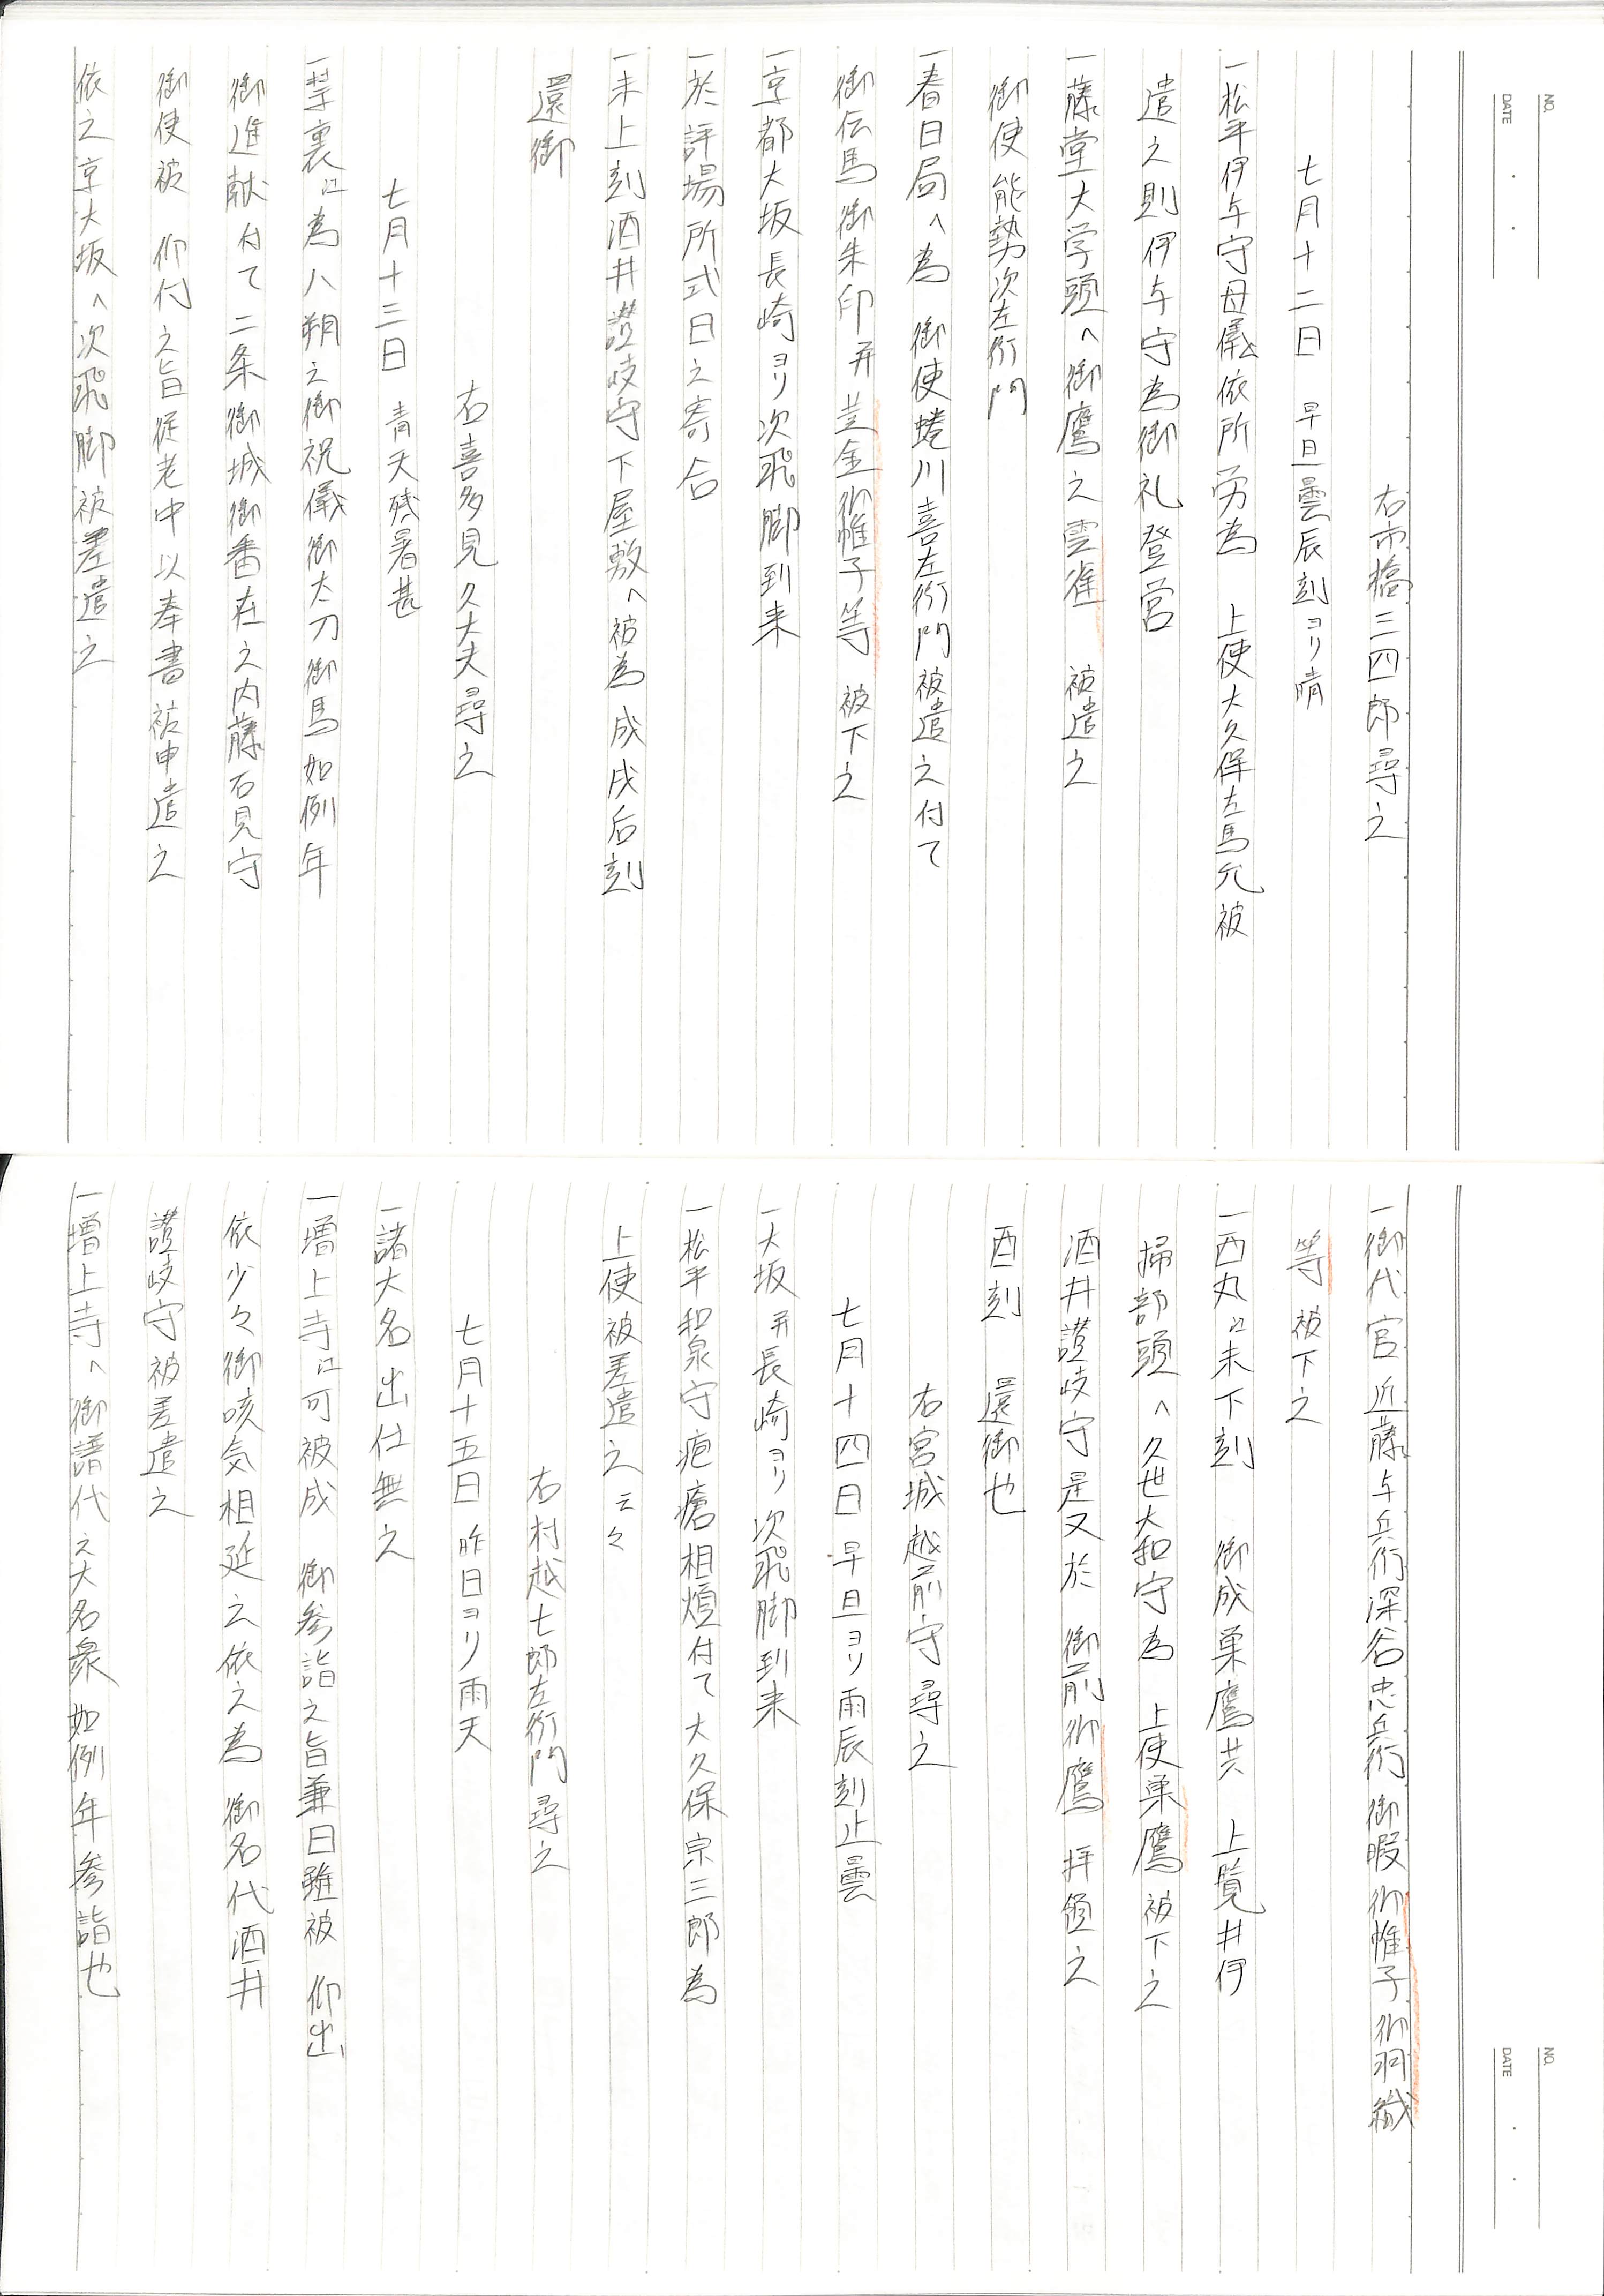 NO.
DATE
右市橋三四郎尋之
七月十二日 早旦曇辰刻ヨリ晴
一松平伊与守母儀依所労為 上使大久保左馬允被
遣之則伊与守為御礼登営
一藤堂大学頭へ御鷹之雲雀 被遣之
御使能勢次左衛門
一春日局へ為 御使蜷川喜左衛門被遣之付て
御伝馬御朱印并黄金御帷子等 被下之
一京都大坂長崎ヨリ次飛脚到来
一於評場所式日之寄合
一未上刻酒井讃岐守下屋敷へ被為成戌后刻
還御
右喜多見久大夫尋之
七月十三日 青天残暑甚
一禁裏江為八朔之御祝儀御太刀御馬如例年
御進献付て二条御城御番在之内藤石見守
御使被 仰付之旨従老中以奉書被申遣之
依之京大坂へ次飛脚被差遣之
NO.
DATE
一御代官近藤与兵衛深谷忠兵衛御暇御帷子御羽織
等被下之
一西丸江未下刻 御成巣鷹共 上覧井伊
掃部頭へ久世大和守為 上使巣鷹被下之
酒井讃岐守是又於 御前御鷹 拝領之
酉刻 還御也
右宮城越前守尋之
七月十四日 早旦ヨリ雨辰刻止曇
一大坂并長崎ヨリ次飛脚到来
一松平和泉守疱瘡相煩付て大久保宗三郎為
上使被差遣之云々
右村越七郎左衛門尋之
七月十五日 昨日ヨリ雨天
一諸大名出仕無之
一増上寺江可被成 御参詣之旨兼日雖被 仰出
依少々御咳気相延云依之為 御名代酒井
讃岐守被差遣之
一増上寺へ御譜代之大名衆如例年参詣也